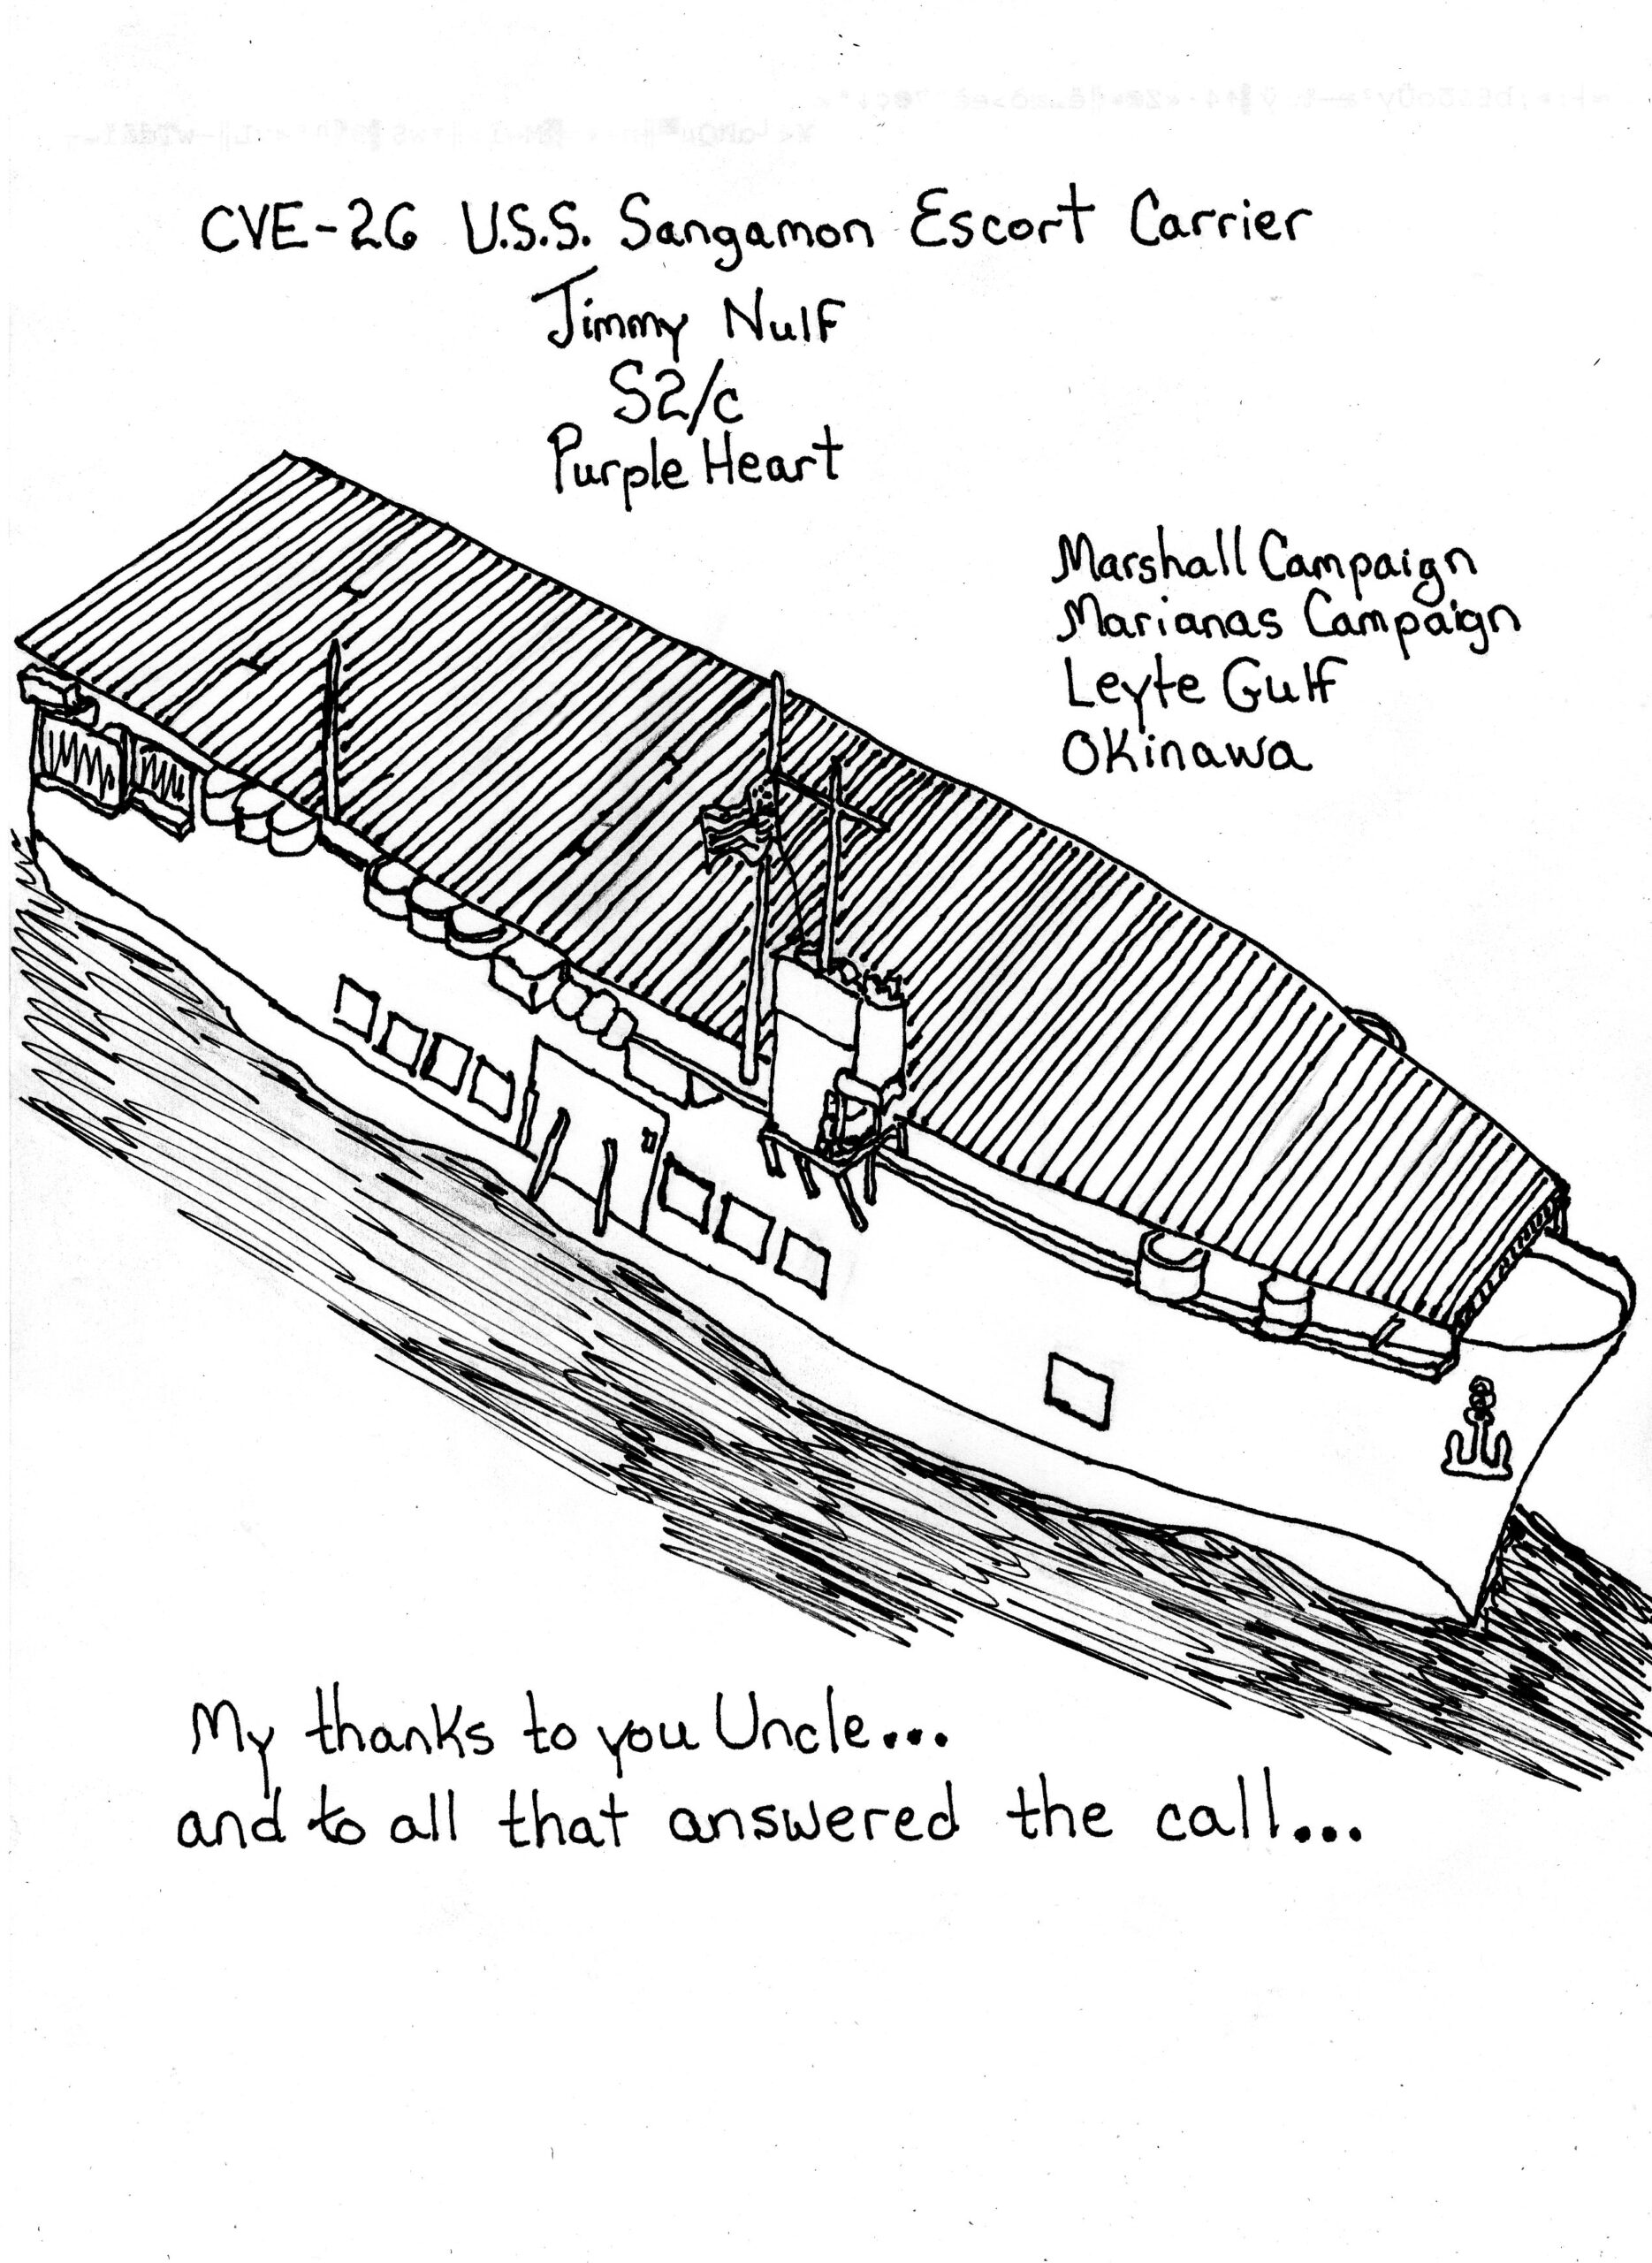 CVE-26 U.S.S. Sangamon Escort Carrier
Jimmy Nulf
S2/c
Purple Heart
Marshall Campaign
Marianas Campaign
Leyte Gulf
Okinawa
My thanks to you Uncle...
and to all that answered the call...